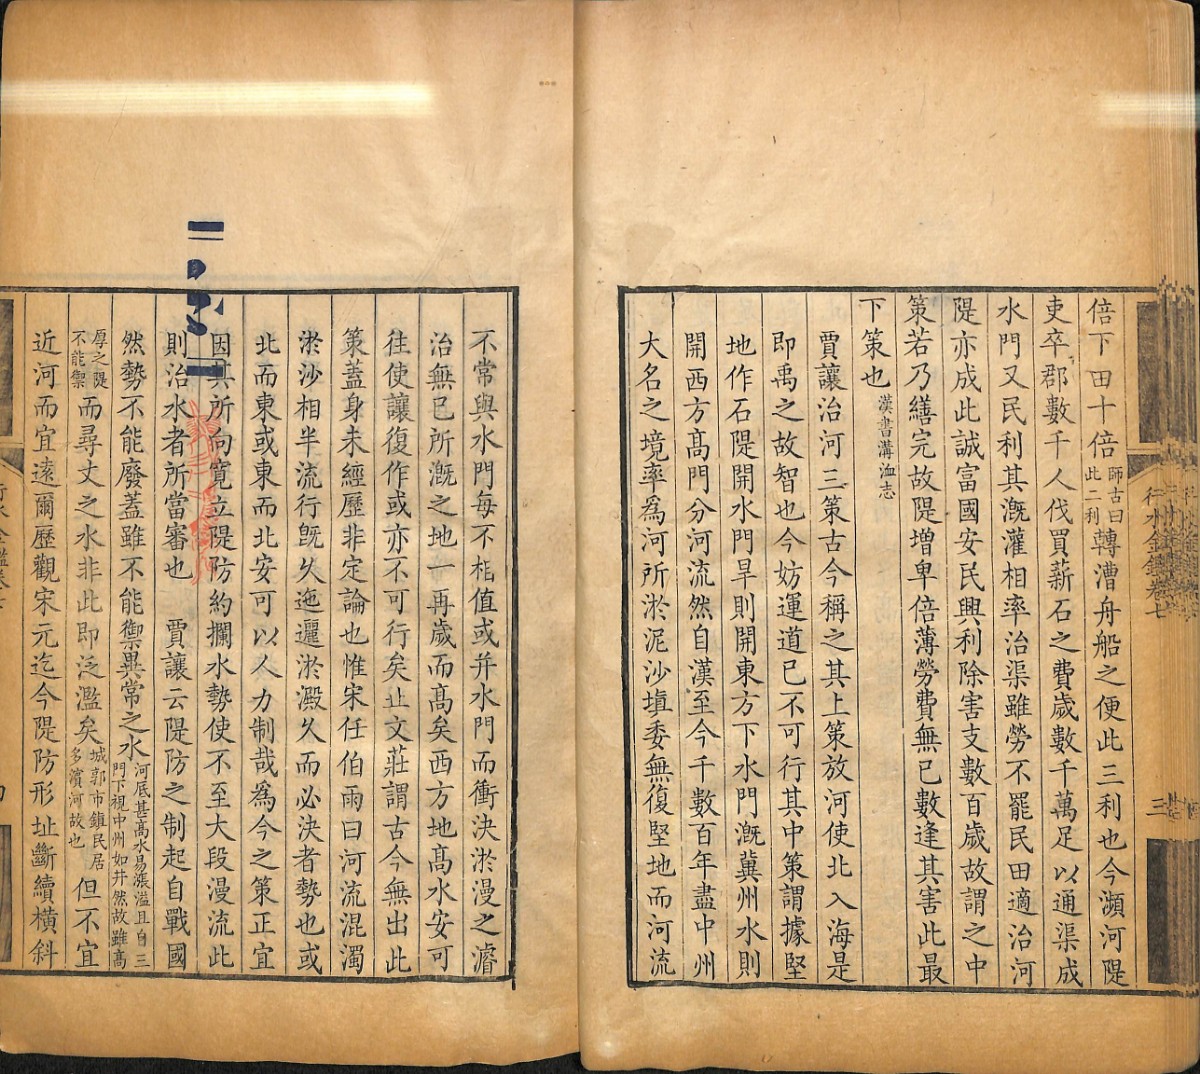 倍下田十倍師古曰此二利轉漕舟船之便此三利也今瀕河隄
吏卒郡數千人伐買薪石之費歲數千萬足以通渠成
水門又民利其溉灌相率治渠雖勞不罷民田適治河
隄亦成此誠富國安民興利除害支數百歲故謂之中
策若乃繕完故隄增卑倍薄勞費無已數逢其害此最
下策也漢書溝洫志
賈讓治河三策古今稱之其上策放河使北入海是
即禹之故智也今妨運道已不可行其中策謂據堅
地作石隄開水門旱則開東方下水門溉冀州水則
開西方高門分河流然自漢至今千數百年盡中州
大名之境率為河所淤泥沙填委無復堅地而河流
不常與水門每不相值或并水門而衝決淤漫之濬
治無已所溉之地一再歲而高矣西方地高水安可
往使讓復作或亦不可行矣丘文莊謂古今無出此
策蓋身未經歷非定論也惟宋任伯雨曰河流混濁
淤沙相半流行旣久迤邐淤澱久而必決者勢也或
北而東或東而北安可以人力制哉為今之策正宜
因其所向寬立隄防約攔水勢使不至大段漫流此
則治水者所當審也　賈讓云隄防之制起自戰國
然勢不能廢蓋雖不能禦異常之水河底甚高水易漲溢且自三門下視中州如井然故雖高
厚之隄不能禦而尋丈之水非此即泛濫矣城郭市鎮民居多濱河故也但不宜
近河而宜遠爾歷觀宋元迄今隄防形址斷續橫斜
行水金鑑卷七
三